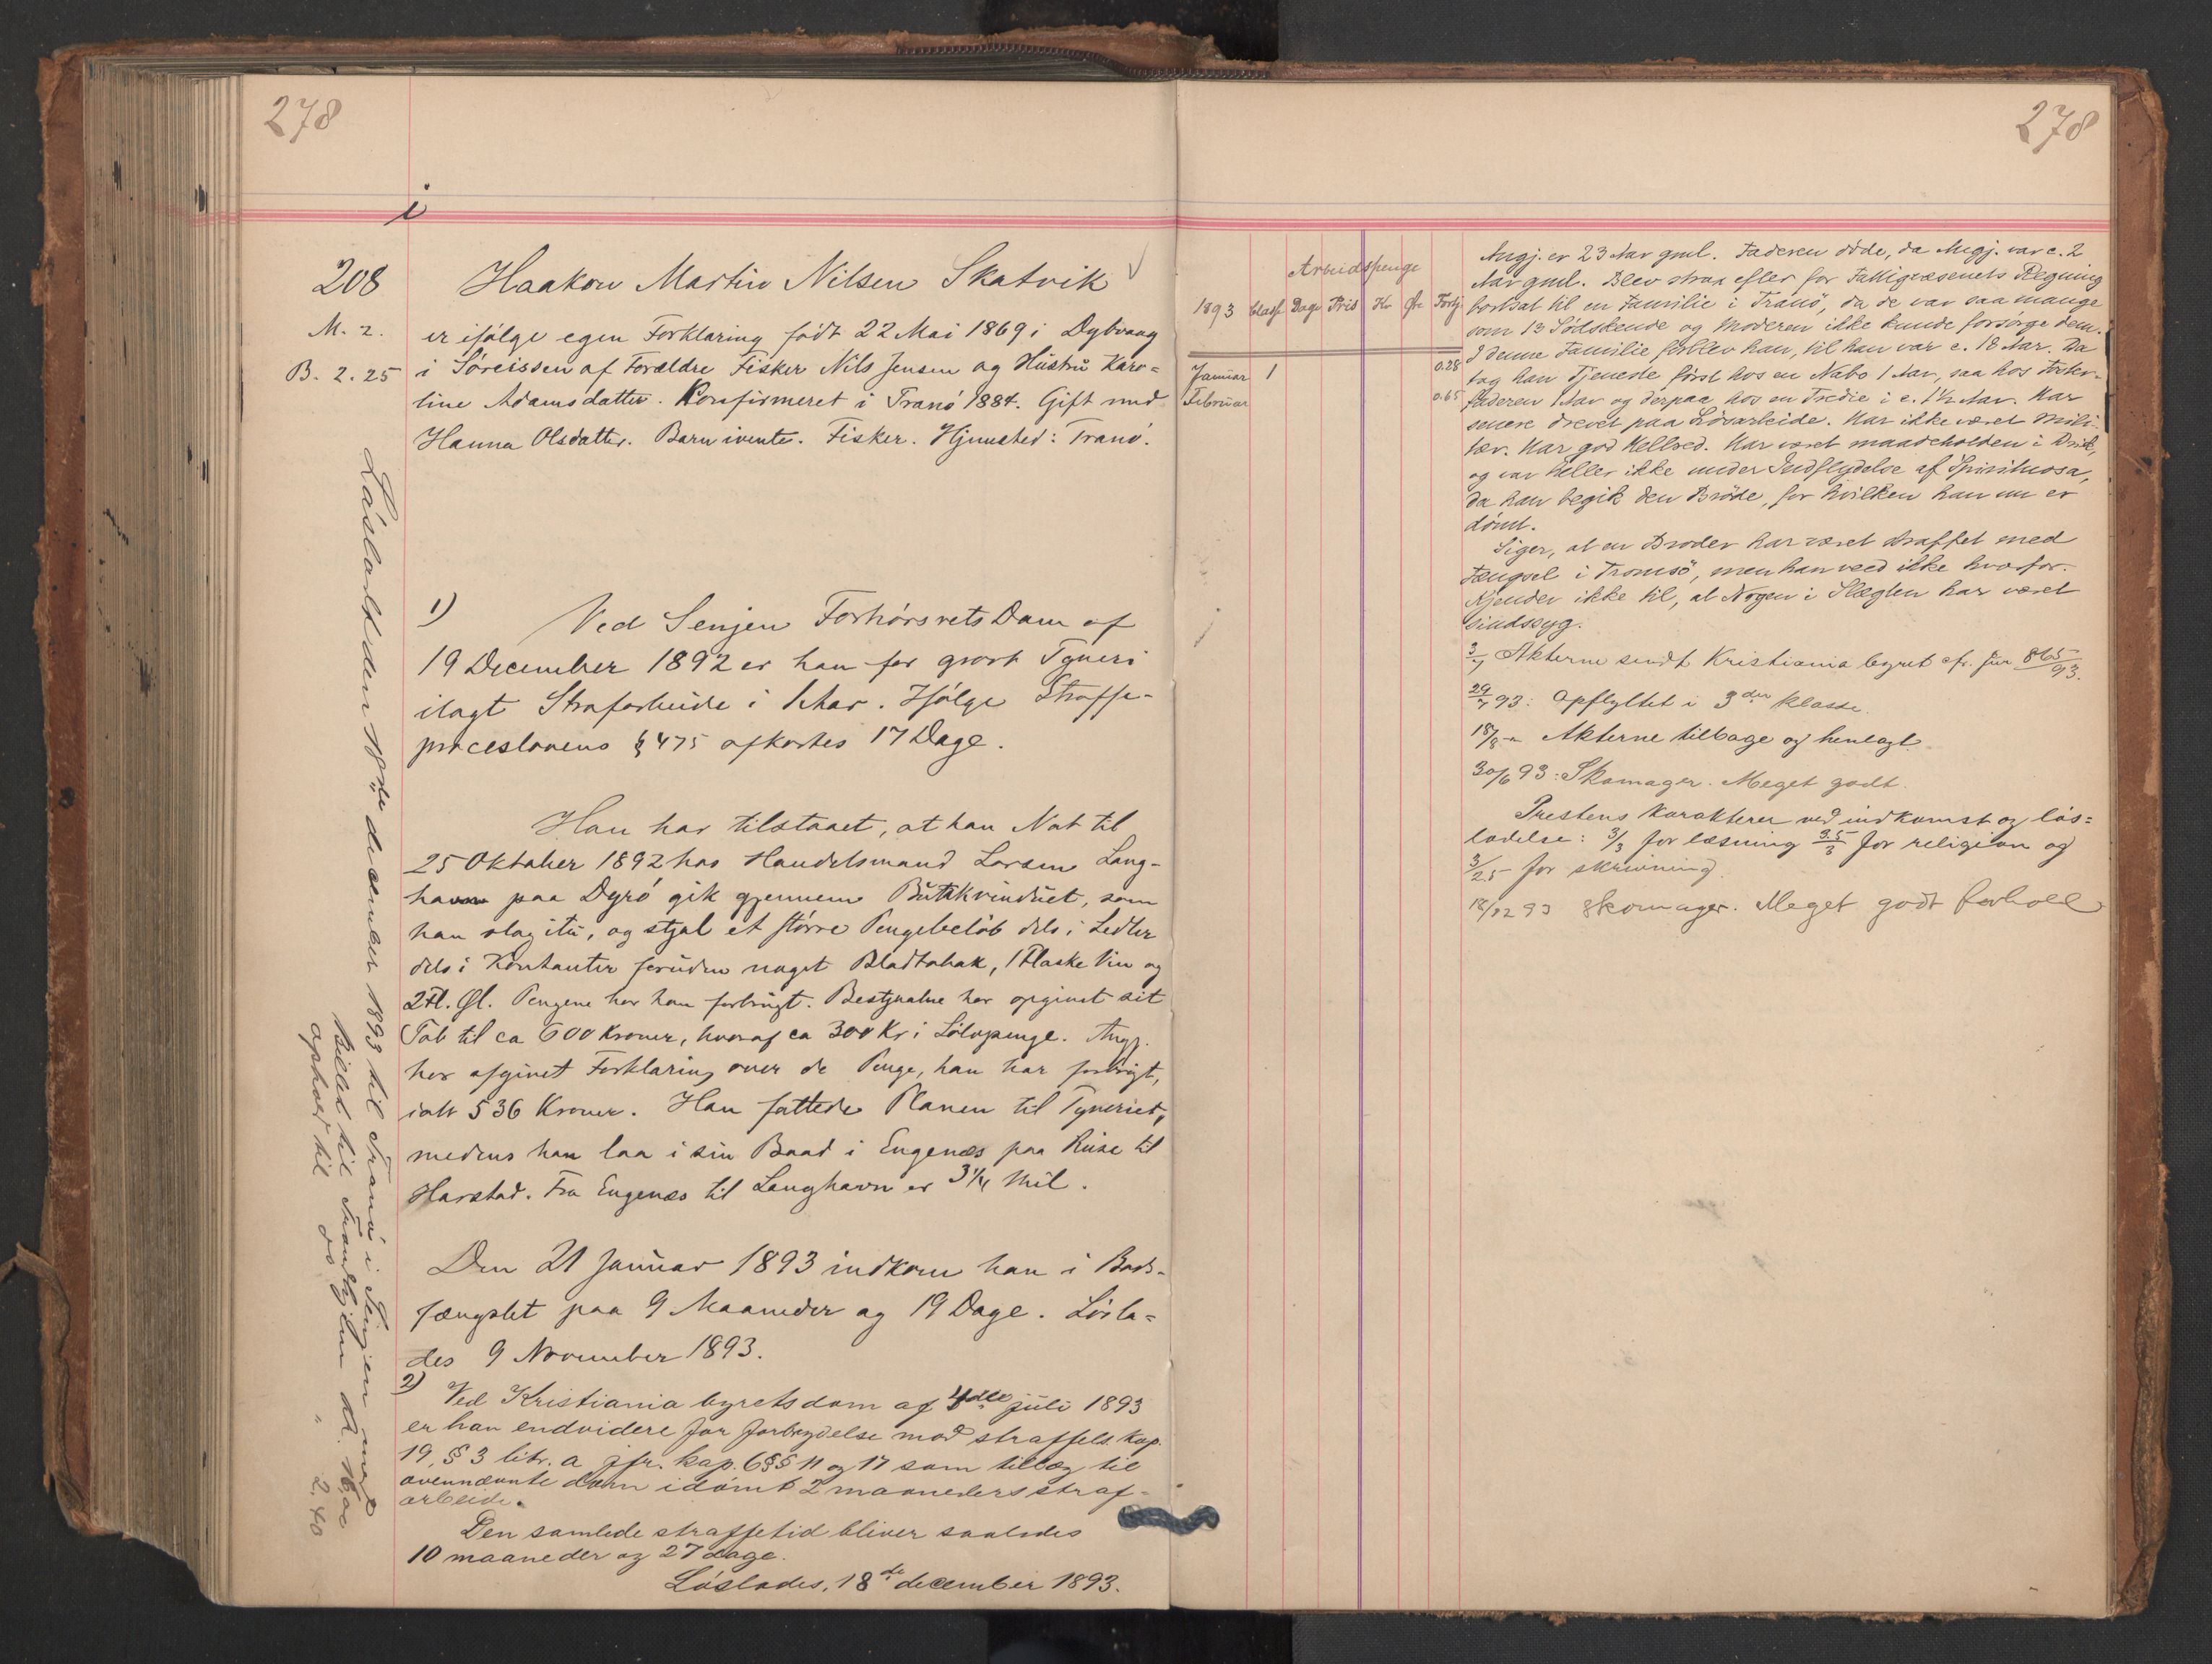 278
i
208
M. 2.
B. 2.25
Haakon Martin Nilsen Skatvik
er ifølge egen Forklaring født 22 Mai 1869 i Dybvaag
i Søreissen af Forældre Fisker Nils Jensen og Hustru Karo-
line Adamsdatter. Konfirmeret i Tranø 1884. Gift med
Hanna Olsdatter. Barn ivente. Fisker. Hjemsted: Tranø.
1)
Ved Senjen Forhørsrets Dom af
19 December 1892 er han for grovt Tyveri
ilagt Strafarbeide i 1 Aar. Ifølge Straffe-
proceslovens § 475 afkortes 17 Dage.
Han har tilstaaet, at han Nat til
25 Oktober 1892 hos Handelsmand Larsen Lang-
havn paa Dyrø gik gjennem Butikvinduet, som
han slog itu, og stjal et større Pengebeløb dels i Sedler
dels i Kontanter foruden noget Bladtobak, 1 Flaske Vin og
2 Fl. Øl. Pengene har han forbrugt. Bestjaalne har opgivet sit
Tab til ca 600 Kroner, hvoraf ca 300 Kr i Sølvpenge. Angj.
har afgivet Forklaring over de Penge, han har forbrugt,
ialt 536 Kroner. Han fattede Planen til Tyveriet,
medens han laa i sin Baad i Engenæs paa Reise til
Harstad. Fra Engenæs til Langhavn er 3 1/4 Mil.
Den 21 Januar 1893 indkom han i Bods-
fængslet paa 9 Maaneder og 19 Dage. Løsla-
des 9 November 1893.
2)
Ved Kristiania byretsdom af 4de juli 1893
er han endvidere for forbrydelse mod straffels. kap.
19, § 3 litr. a jfr. kap. 6 §§ 11 og 17 som tillæg til
ovennævnte dom idømt 2 maaneders straf-
arbeide.
Den samlede straffetid bliver saaledes
10 maaneder og 27 dage.
Løslades, 18de december 1893.
Løsladt den 18de december 1893 til Tranø i Senjen med
Billet til Trondhjem
ophold til
2.40
278
Arbeidspenge
1893 Classe Dage Pris Kr Øre Fortj
Januar 1 0.28
Februar 0.65
Angj. er 23 Aar gml. Faderen døde, da Angj. var c. 2
Aar gml. Blev strax efter for Fattigvæsenets Regning
bortsat til en Familie i Tranø, da de var saa mange
som 13 Sødskende og Moderen ikke kunde forsørge dem.
I denne Familie forblev han, til han var c. 18 Aar. Da
tog han Tjeneste først hos en Nabo 1 Aar, saa hos Foster-
faderen 1 Aar og derpaa hos en Tredie i c. 1½ Aar. Har
senere drevet paa Løsarbeide. Har ikke været Mili-
tær. Har god Helbred. Har været maadeholden i Drik,
og var heller ikke under Indflydelse af Spirituosa,
da han begik den Brøde, for hvilken han nu er
dømt.
Siger, at en Broder har været straffet med
Fængsel i Tromsø, men han veed ikke hvorfor.
Kjender ikke til, at Nogen i Slægten har været
sindssyg.
3/7 Akterne sendt Kristiania byret cfr. Jur 865/93.
29/7 93: Opflyttet i 3die klasse.
18/8 " Akterne tilbage og henlagt.
30/6 93: Skomager. Meget godt.
Prestens karakterer ved indkomst og løs-
ladelse: 3/3 for læsning 3.5/3 for religion og
3/2.5 for skrivning.
18/12 93 Skomager. Meget godt forhold